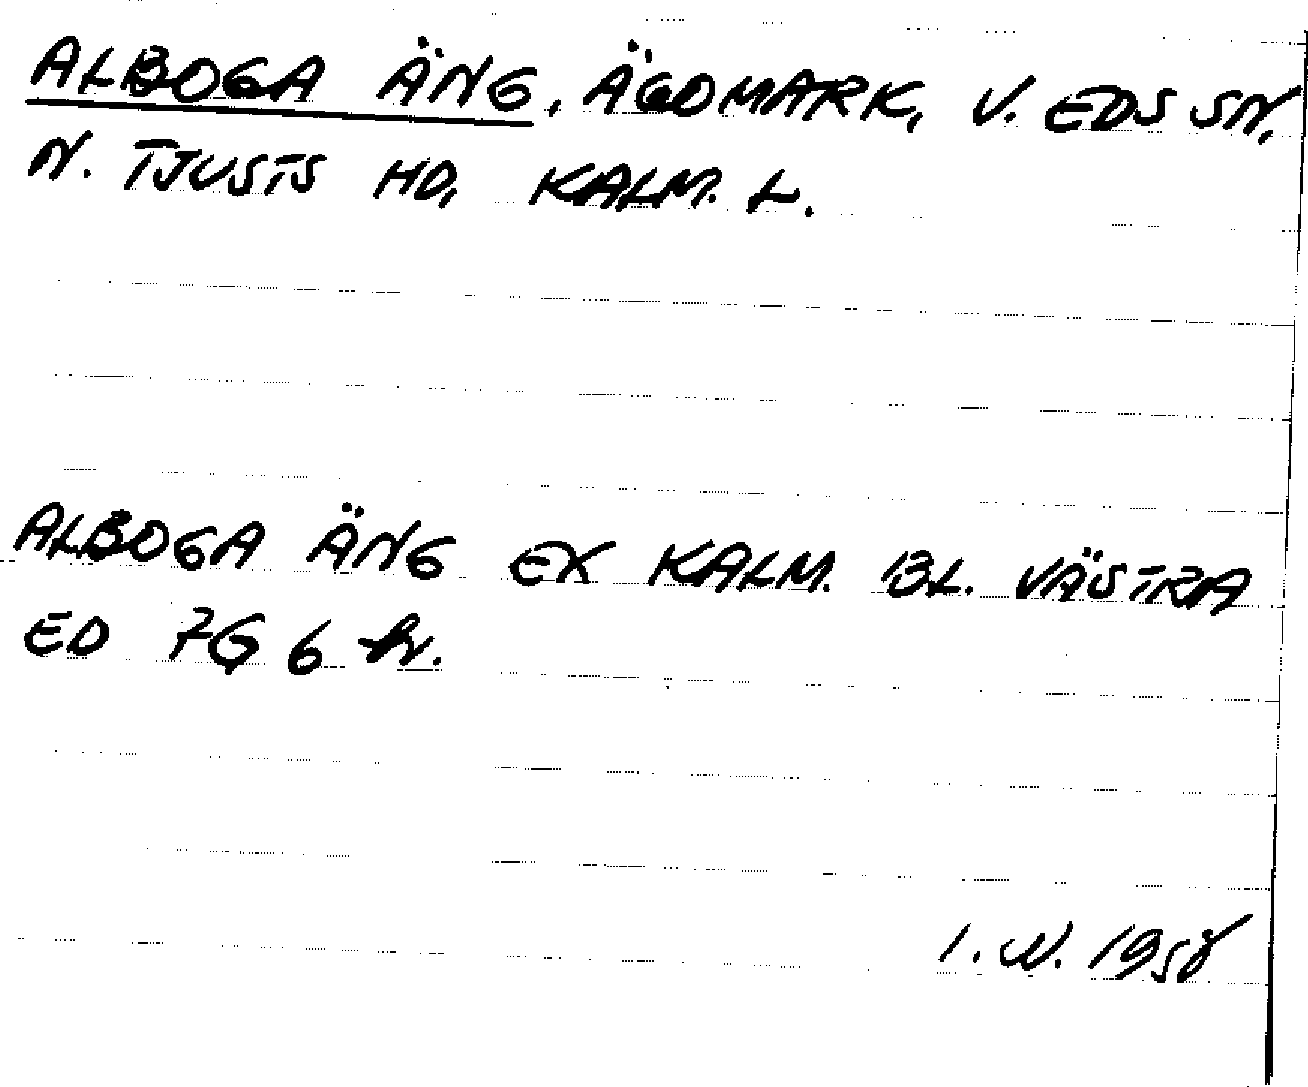 ALBOGA ÄNG, ÄGOMARK, V. EDS SN,
N. TJUSTS HD, KALM. L.
ALBOGA ÄNG EX KALM. BL. VÄSTRA
ED 7G 6
1. 1958